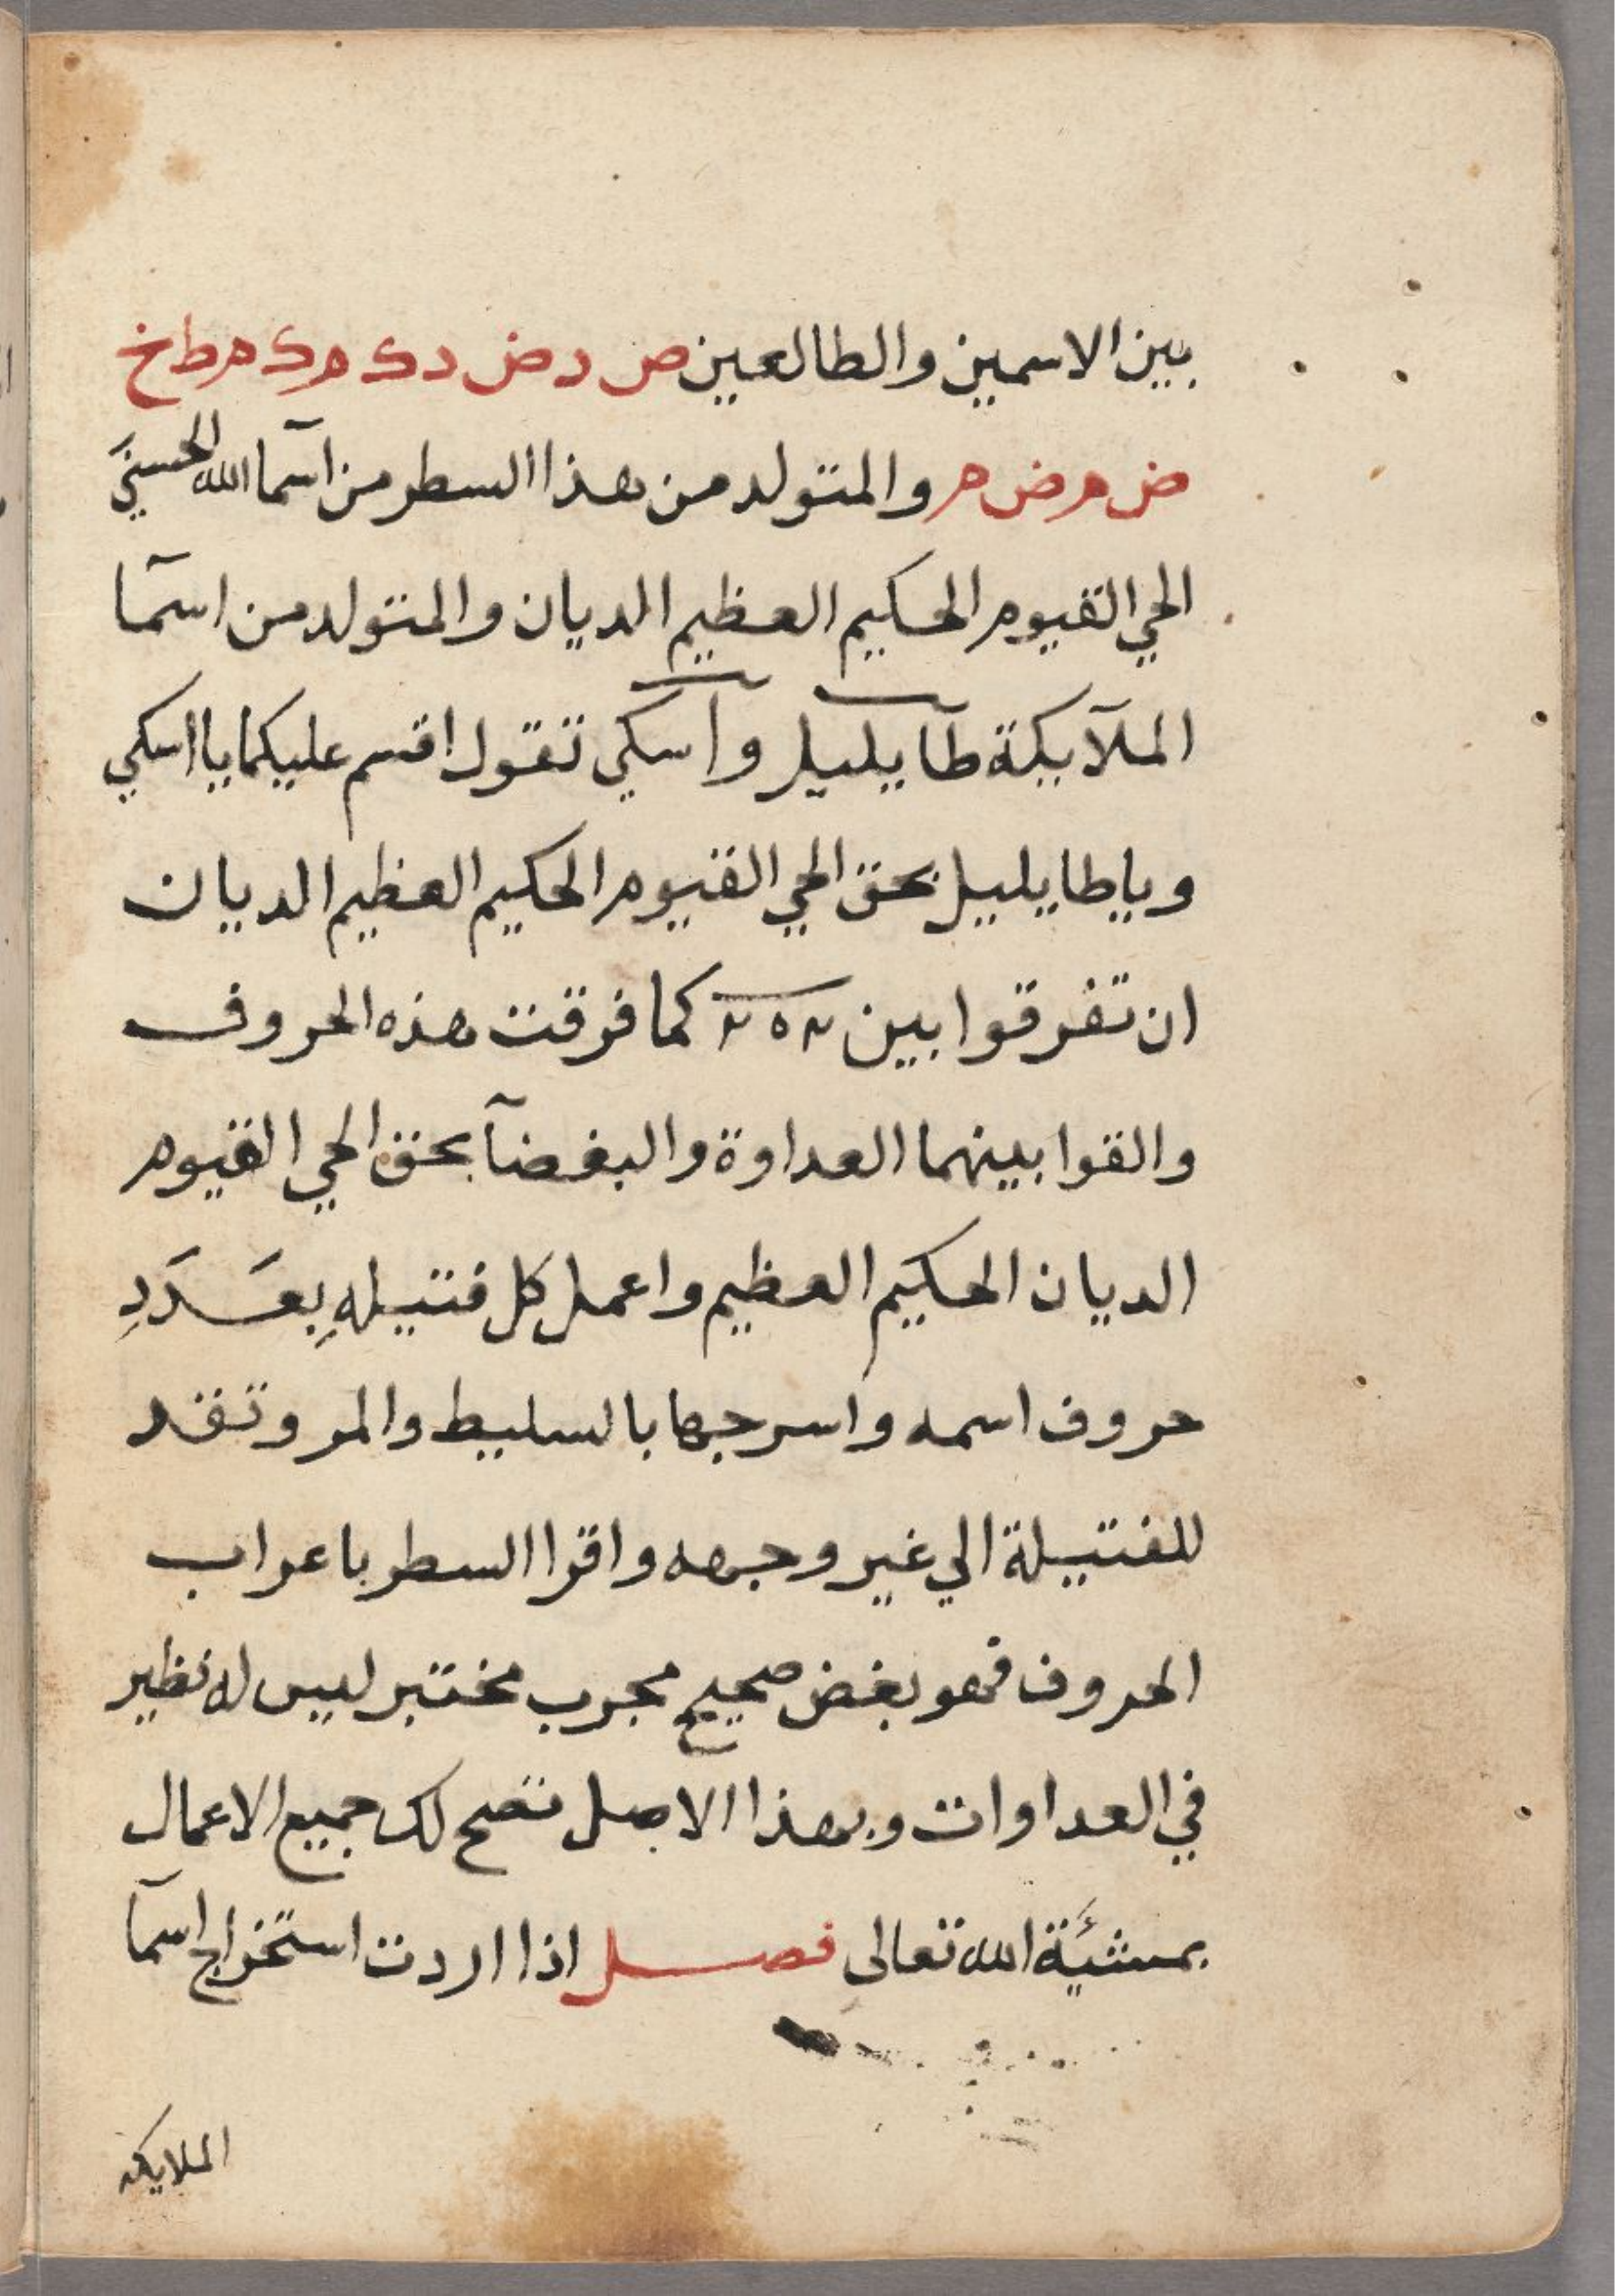 بين الاسمين والطالعين ص د ض د ك م ك م ط خ
ض م ض م والمتولد من هذا السطر من اسمآ الله الحسني
الحي القيوم الحكيم العظيم الديان والمتولد من اسمآ
الملآيكة طآيليل وآسكي تقول اقسم عليكما يا اسكي
ويا طايليل بحق الحي القيوم الحكيم العظيم الديان
ان تفرقوا بين كما فرقت هذه الحروف
والقوا بينهما العداوة والبغضآ بحق الحي القيوم
الديان الحكيم العظيم واعمل كل فتيلهِ بعَدَدِ
حروف اسمه واسرجها بالسليط والمر وتقد
للفتيلة الي غير وجهه واقرا السطر باعراب
الحروف فهو بغض صحيح مجرب مختبر ليس له نظير
في العداوات وبهذا الاصل تصح لك جميع الاعمال
بمشئَية الله تعالى فصل اذا اردت استخراج اسمآ
الملايكه